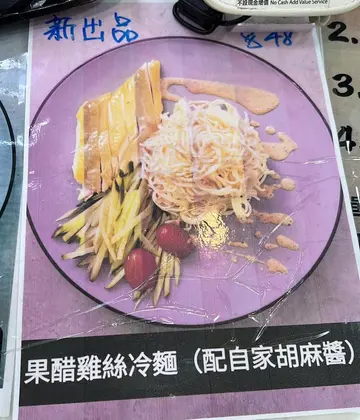 不設現金增值 No Cash Add Value Service
新出品 $48
2.
3.
4
果醋雞絲冷麵（配自家胡麻醬）